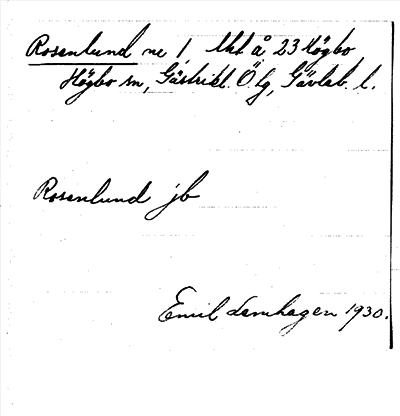 Rosenlund nr 1, Uht å 23 Högbo
Högbo sn, Gästrikl. Ö. lg, Gävleb. l.
Rosenlund jb
Emil Lamhagen 1930.